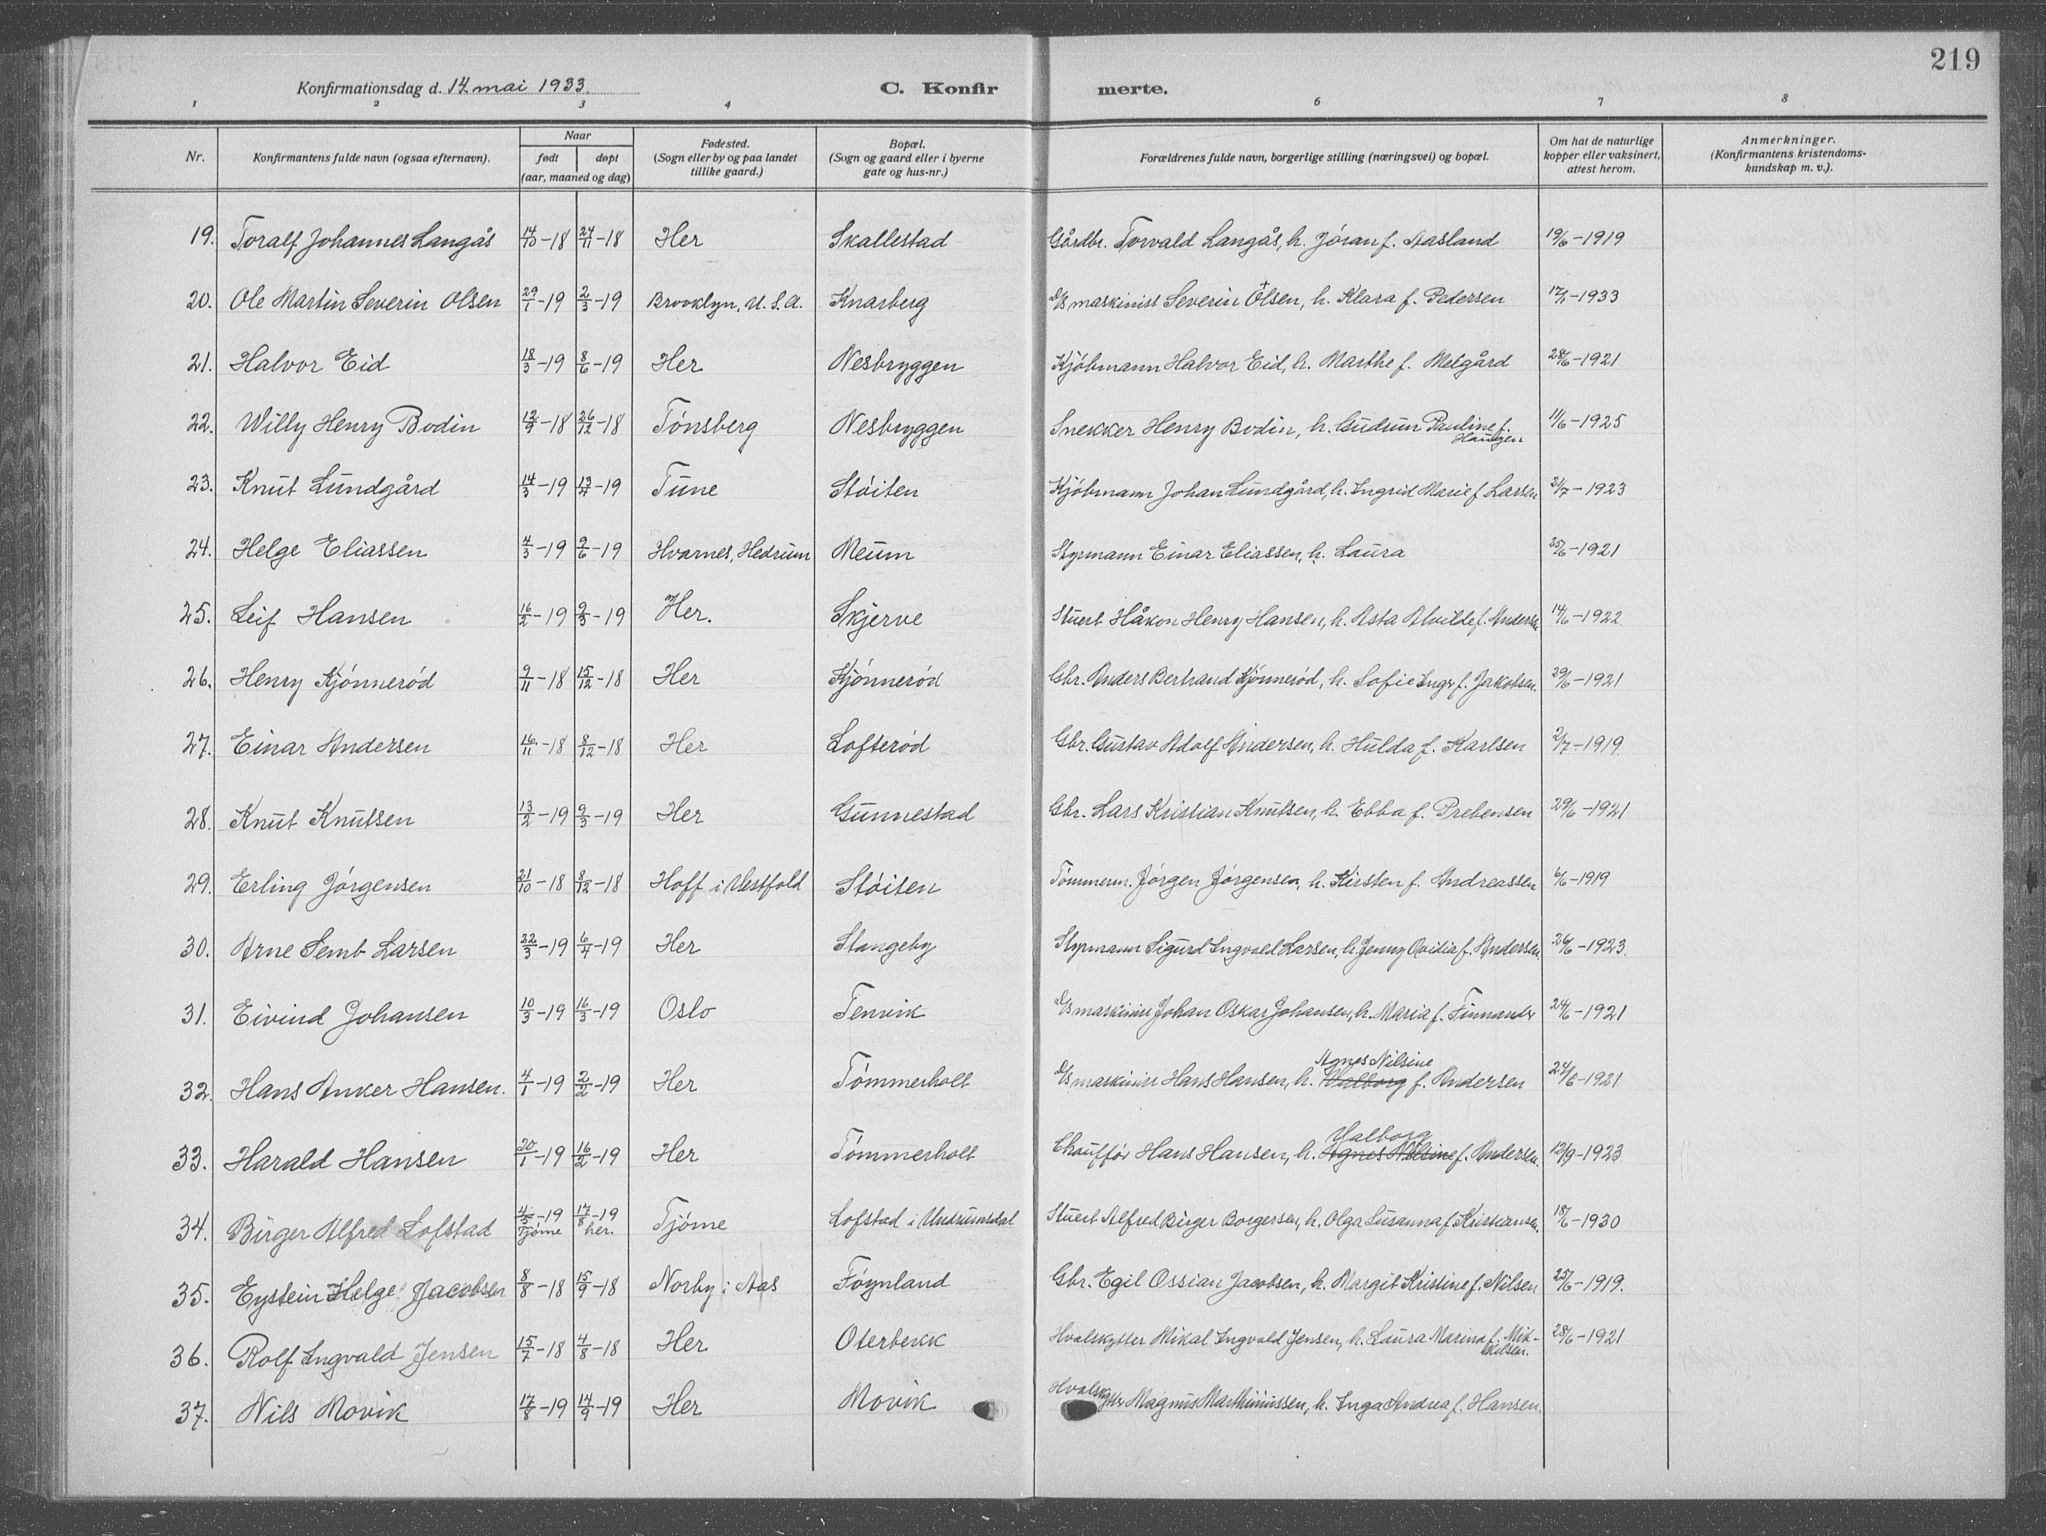 219
Konfirmationsdag d. 14. mai 1933. C. Konfir merte.
1 2 3 4 6 7 8
Nr. Konfirmantens fulde navn (ogsaa efternavn). Naar født døpt (aar, maaned og dag) Fødested. (Sogn eller by og paa landet tillike gaard.) Bopæl. (Sogn og gaard eller i byerne gate og hus-nr.) Forældrenes fulde navn, borgerlige stilling (næringsvei) og bopæl. Om hat de naturlige kopper eller vaksinert, attest herom. Anmerkninger. (Konfirmantens kristendomskundskap m. v.).
19. Toralf Johannes Langås 14/10-18 24/11-18 Her Skallestad Gårdbr. Torvald Langås, h. Jóran f. Aasland 19/6-1919
20. Ole Martin Severin Olsen 29/1-19 2/3-19 Brooklyn, U.S.A. Knarberg D/s maskinist Severin Olsen, h. Klara f. Pedersen 17/1-1933
21. Halvor Eid 18/3-19 8/6-19 Her Nesbryggen Kjóbmann Halvor Eid, h. Marthe f. Metgård 28/6-1921
22. Willy Henry Bodin 12/9-18 26/12-18 Tónsberg Nesbryggen Snekker Henry Bodin, h. Gudrun Pauline f. Haugen 11/6-1925
23. Knut Lundgård 14/3-19 13/4-19 Tune Stóiten Kjóbmann Johan Lundgård, h. Ingrid Marie f. Larsen 21/7-1923
24. Helge Eliassen 4/3-19 9/6-19 Hvarnes, Hedrum Meum Styrmann Einar Eliassen, h. Laura 25/6-1921
25. Leif Hansen 16/2-19 9/3-19 Her. Skjerve Stuert Håkon Henry Hansen, h. Asta Alvilde f. Andersen 14/6-1922
26. Henry Kjónneród 9/11-18 15/12-18 Her Kjónneród Gbr. Anders Bertrand Kjónneród, h. Sofie Inga f. Jakobsen. 29/6-1921
27. Einar Andersen 16/11-18 8/12-18 Her Lofteród Gbr. Gustav Adolf Andersen, h. Hulda f. Karlsen 2/7-1919
28. Knut Knutsen 13/2-19 9/3-19 Her Gunnestad Gbr. Lars Kristian Knutsen, h. Ebba f. Prebensen 29/6-1921
29. Erling Jórgensen 21/10-18 8/12-18 Hoff i Vestfold Stóiten Tómmerm. Jórgen Jórgensen, h. Kirsten f. Andreassen 6/6-1919
30. Arne Semb-Larsen 22/3-19 6/4-19 Her Stangeby Styrmann Sigurd Ingvald Larsen, h. Jenny Ovidia f. Andersen. 26/6-1923.
31. Eivind Johansen 10/3-19 16/3-19 Oslo Tenvik D/s maskinist Johan Oskar Johansen, h. Maria f. 24/6-1921
32. Hans Anker Hansen. 4/1-19 2/2-19 Her Tómmerholt D/s maskinist Hans Hansen, h. Agnes Nilsine Valborg f. Andersen 24/6-1921
33. Harald Hansen 20/1-19 16/2-19 Her Tómmerholt Chauffór Hans Hansen, h. Valborg Agnes Nilsine f. Andersen. 12/9-1923
34. Birger Alfred Lofstad 4/5-19 Tjóme 17/8-19 her. Tjóme Lofstad i Undrumsdal Stuert Alfred Birger Borgersen, h. Olga Susanna f. Kristiansen. 18/6-1930
35. Eystein Helge Jacobsen 8/8-18 15/9-18 Norby i Aas Fóynland Gbr. Egil Ossian Jacobsen, h. Margit Kristine f. Nilsen 25/6-1919.
36. Rolf Ingvald Jensen 15/7-18 4/8-18 Her Oterbekk Hvalskytter Mikal Ingvald Jensen, h. Laura Marina f. Mikkelsen. 28/6-1921
37. Nils Movik 17/8-19 14/9-19 Her Movik Hvalskytter Magnus Marthinussen, h. Inga Andrea f. Hansen.